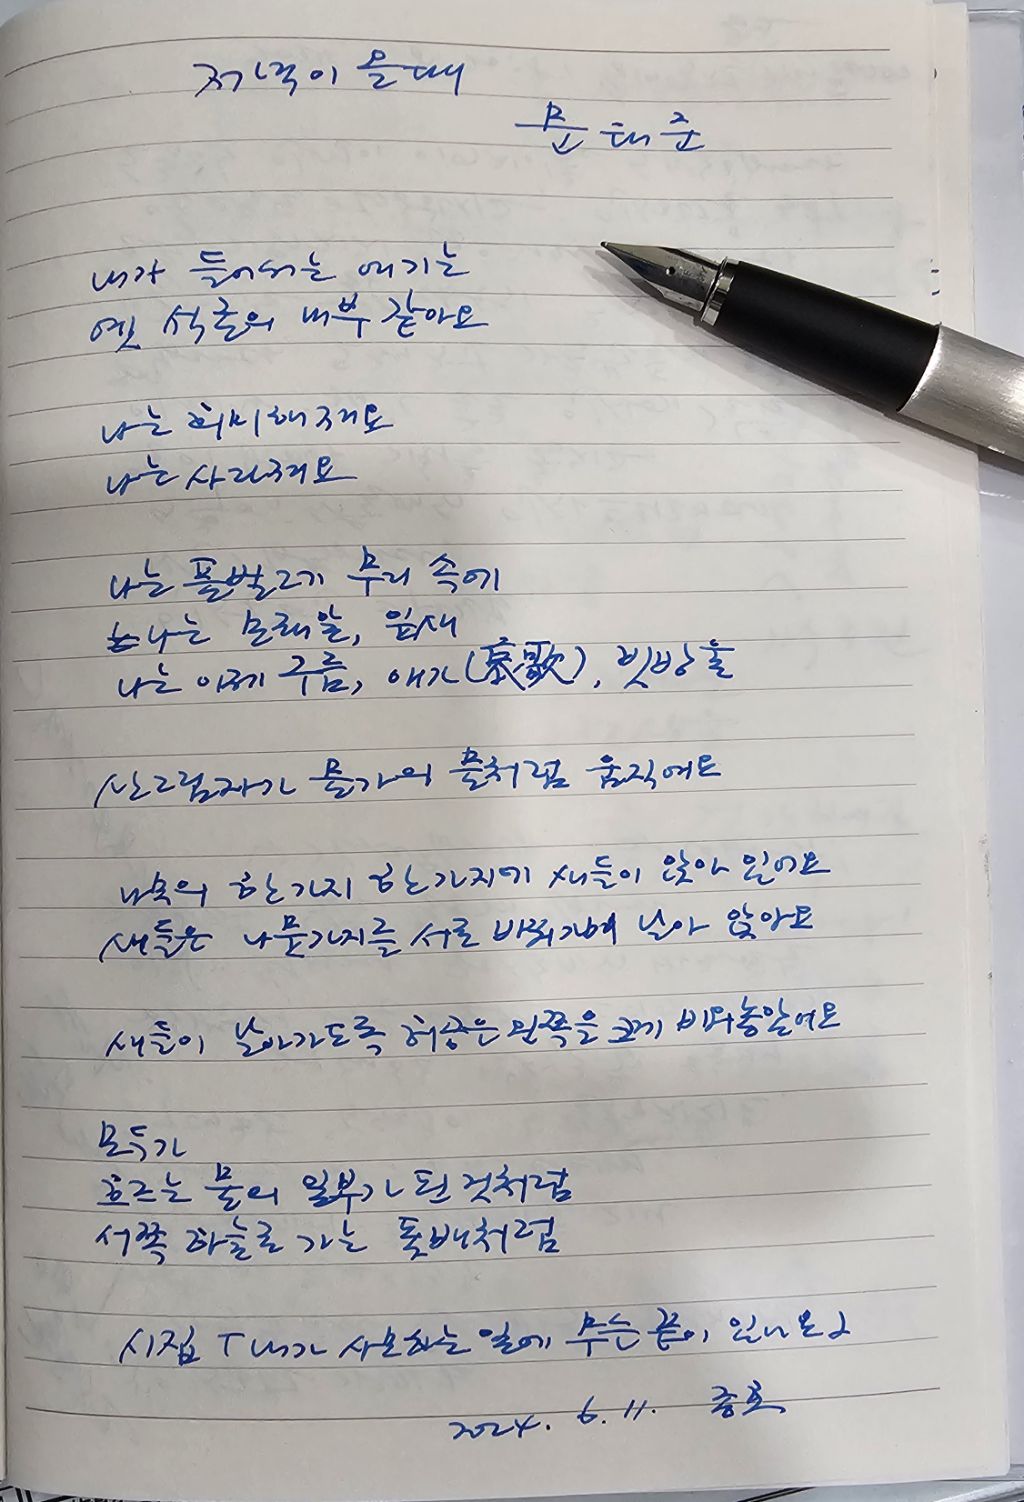 저녁이 올 때
문태준
내가 들어서는 여기는
옛 석굴의 내부 같아요
나는 희미해져요
나는 사라져요
나는 풀벌레 무리 속에
나는 모래알, 잎새
나는 이제 구름, 애가(哀歌), 빗방울
산그림자가 물가의 물처럼 움직여요
나무의 한 가지 한 가지에 새들이 앉아 있어요
새들은 나뭇가지를 서로 바꿔가며 날아 앉아요
새들이 날아가도록 허공은 왼쪽을 크게 비워놓았어요
모두가
흐르는 물의 일부가 된 것처럼
서쪽 하늘로 가는 돛배처럼
시집 「내가 사모하는 일에 무슨 끝이 있나요」
2024. 6. 11.